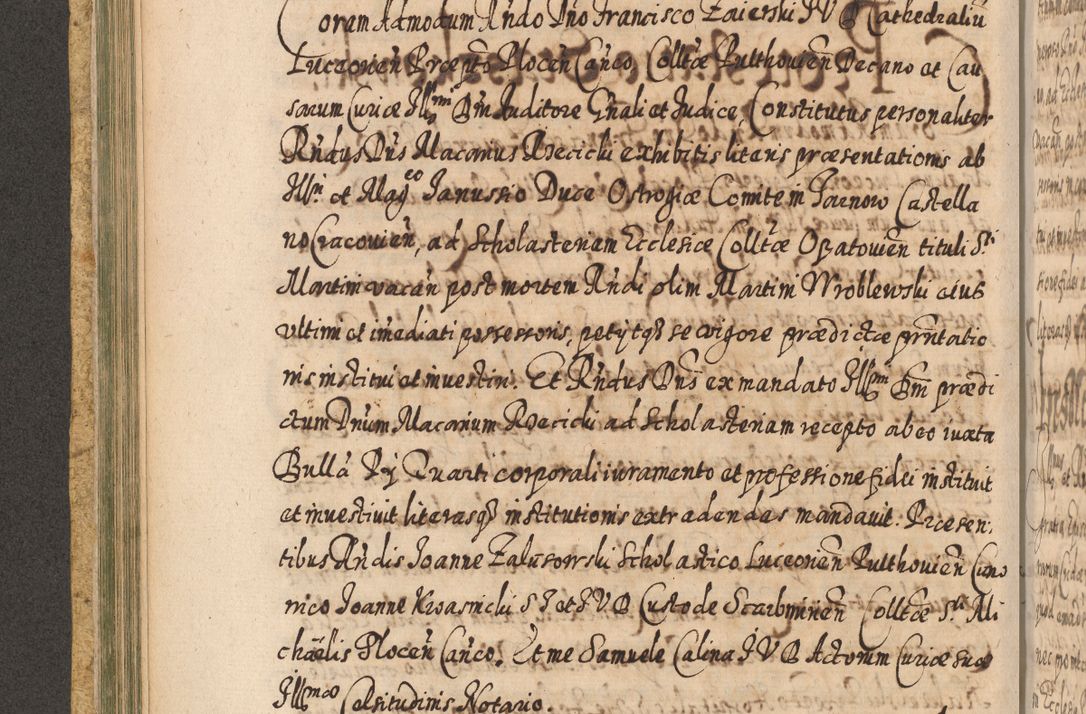 Coram Admodum Rndo Dno Francisco Zaierski IVD Cathedraliu
Luceorien Præpto Plocen Canco, Colltæ Pulthovien Decano et Cau
sarum Curiæ Illmi Dni Auditore Gnali et Judice, Constitutus personaliter
Rndus Dns Macarius Rzecicki exhibitis literis præsentationis ab
Illri et Magco Janussio Duce Ostrogiæ Comite in Tarnow Castella
no Cracovien, ad Scholasteriam Ecclesiæ Colltæ Opatovien tituli Sti
Martini vacan post mortem Rndi olim Martini Wroblewski eius
ultimi et imediati possessoris, petijtqz se vigore prædictæ prntatio
nis institui et investiri. Et Rndus Dns ex mandato Illmi Dni prædi
ctum Dnum Macarium Rzecicki ad Scholasteriam recepto ab eo iuxta
Bulla Pij Quarti corporali iuramento et professione fidei instituit
et investivit literasqz institutionis extradendas mandavit. Præsen:
tibus Rndis Joanne Zalusowski Scholastico Luceorien Pulthovien Cano
nico Joanne Kwasnicki S T et IVD Custode Scarbimirien Colltæ Sti Mi
chaelis Plocen Canco. Et me Samuele Calina IVD Actorum Curiæ suæ
Illmæ Celsitudinis Notario.